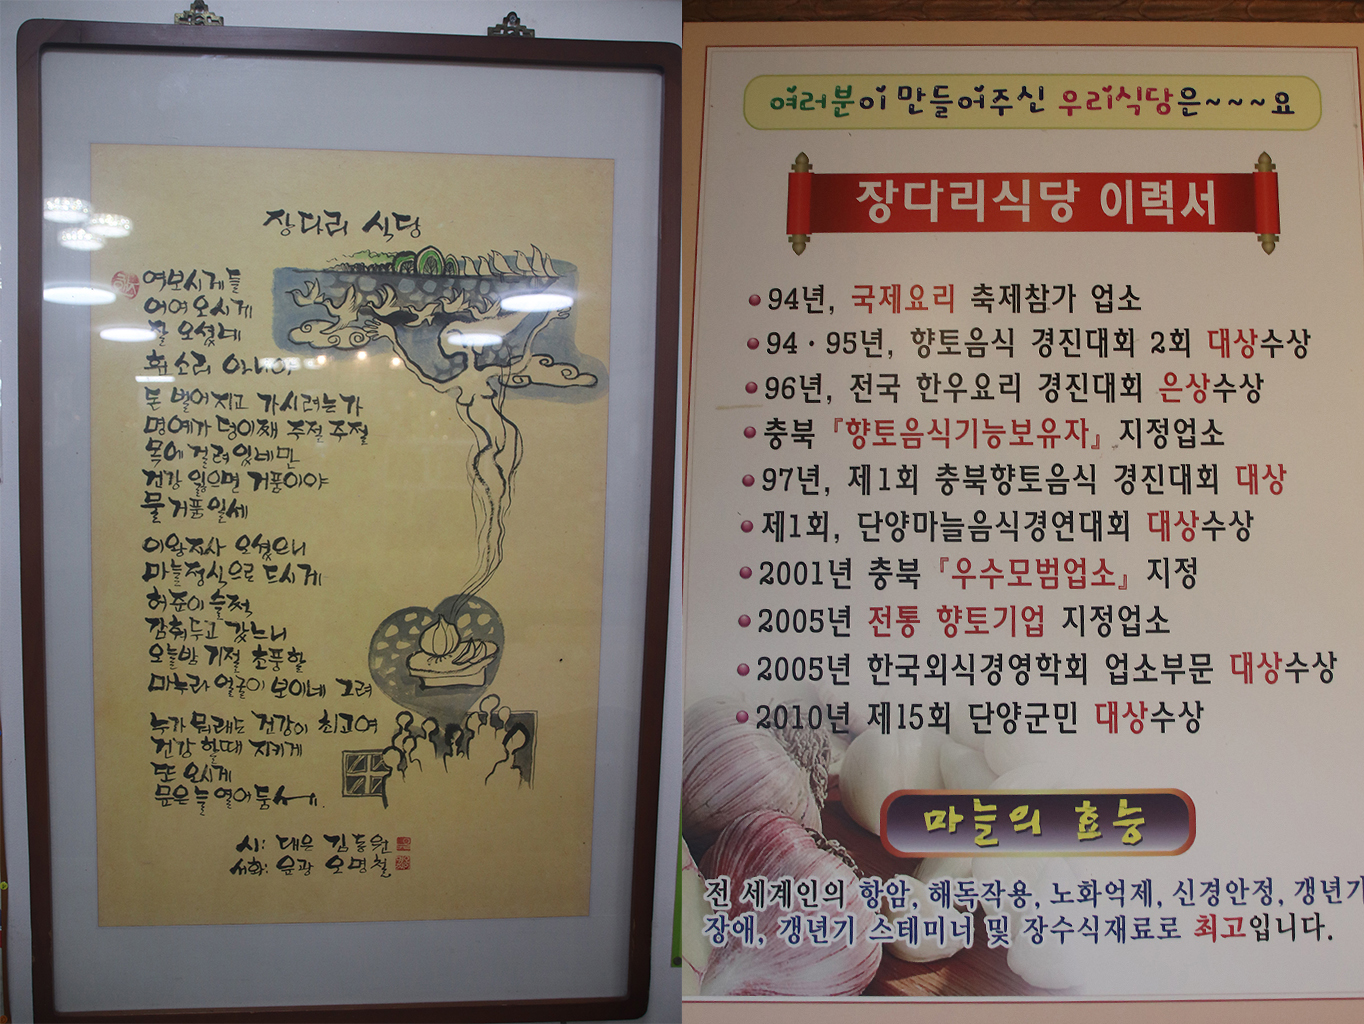 장다리 식당
여보시게들
어여 오시게
잘 오셨네
헛소리 아니야
돈 벌어 지고 가시려는가
명예가 덩이째 주절주절
목에 걸려있네만
건강 잃으면 거품이야
물거품일세
이왕지사 오셨으니
마늘정식으로 드시게
허준이 슬쩍
감춰두고 갔느니
오늘밤 기절 초풍할
마누라 얼굴이 보이네 그려
누가 뭐래도 건강이 최고여
건강 할때 지키게
또 오시게
문은 늘 열어둠세.
시: 대은 김동원
서화: 운광 오명철
여러분이 만들어주신 우리식당은~~~요
장다리식당 이력서
94년, 국제요리 축제참가 업소
94·95년, 향토음식 경진대회 2회 대상수상
96년, 전국 한우요리 경진대회 은상수상
충북『향토음식기능보유자』지정업소
97년, 제1회 충북향토음식 경진대회 대상
제1회, 단양마늘음식경연대회 대상수상
2001년 충북『우수모범업소』지정
2005년 전통 향토기업 지정업소
2005년 한국외식경영학회 업소부문 대상수상
2010년 제15회 단양군민 대상수상
마늘의 효능
전 세계인의 항암, 해독작용, 노화억제, 신경안정, 갱년기
장애, 갱년기 스테미너 및 장수식재료로 최고입니다.